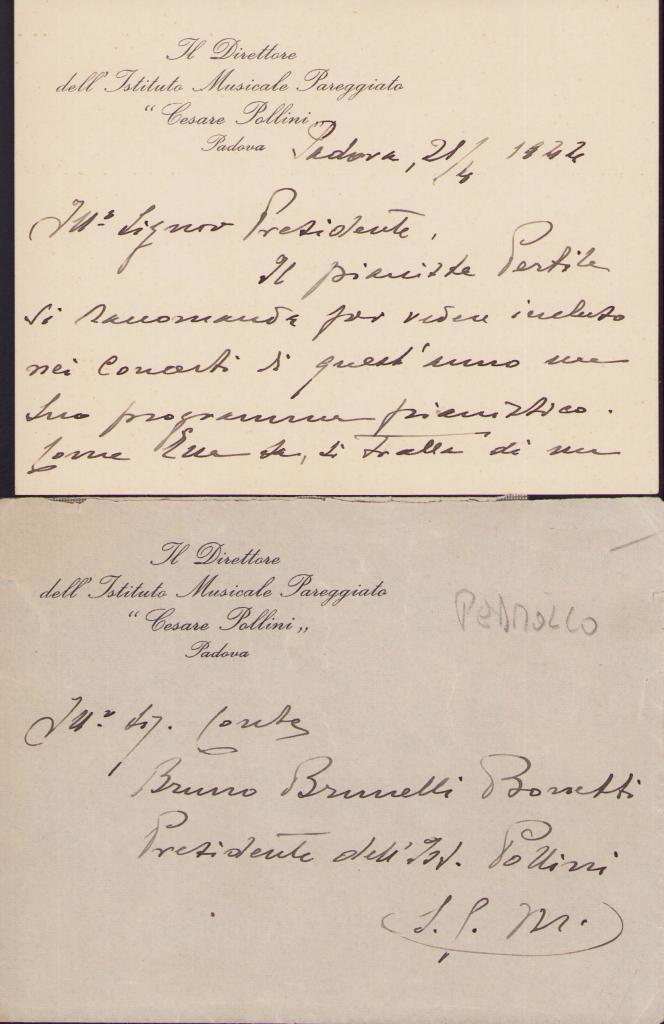 Il Direttore
dell'Istituto Musicale Pareggiato
"Cesare Pollini„
Padova
Padova, 21/4 1942
Ill.º Signor Presidente,
Il pianista Pertile
si raccomanda per vedere incluso
nei Concerti di quest'anno un
suo programma pianistico.
Come Ella sa, si tratta di un
Il Direttore
dell'Istituto Musicale Pareggiato
"Cesare Pollini„
Padova
PEDROLLO
Ill.º Sig. Conte
Bruno Brunelli Bonetti
Presidente dell'Ist. Pollini
(S. P. M.)